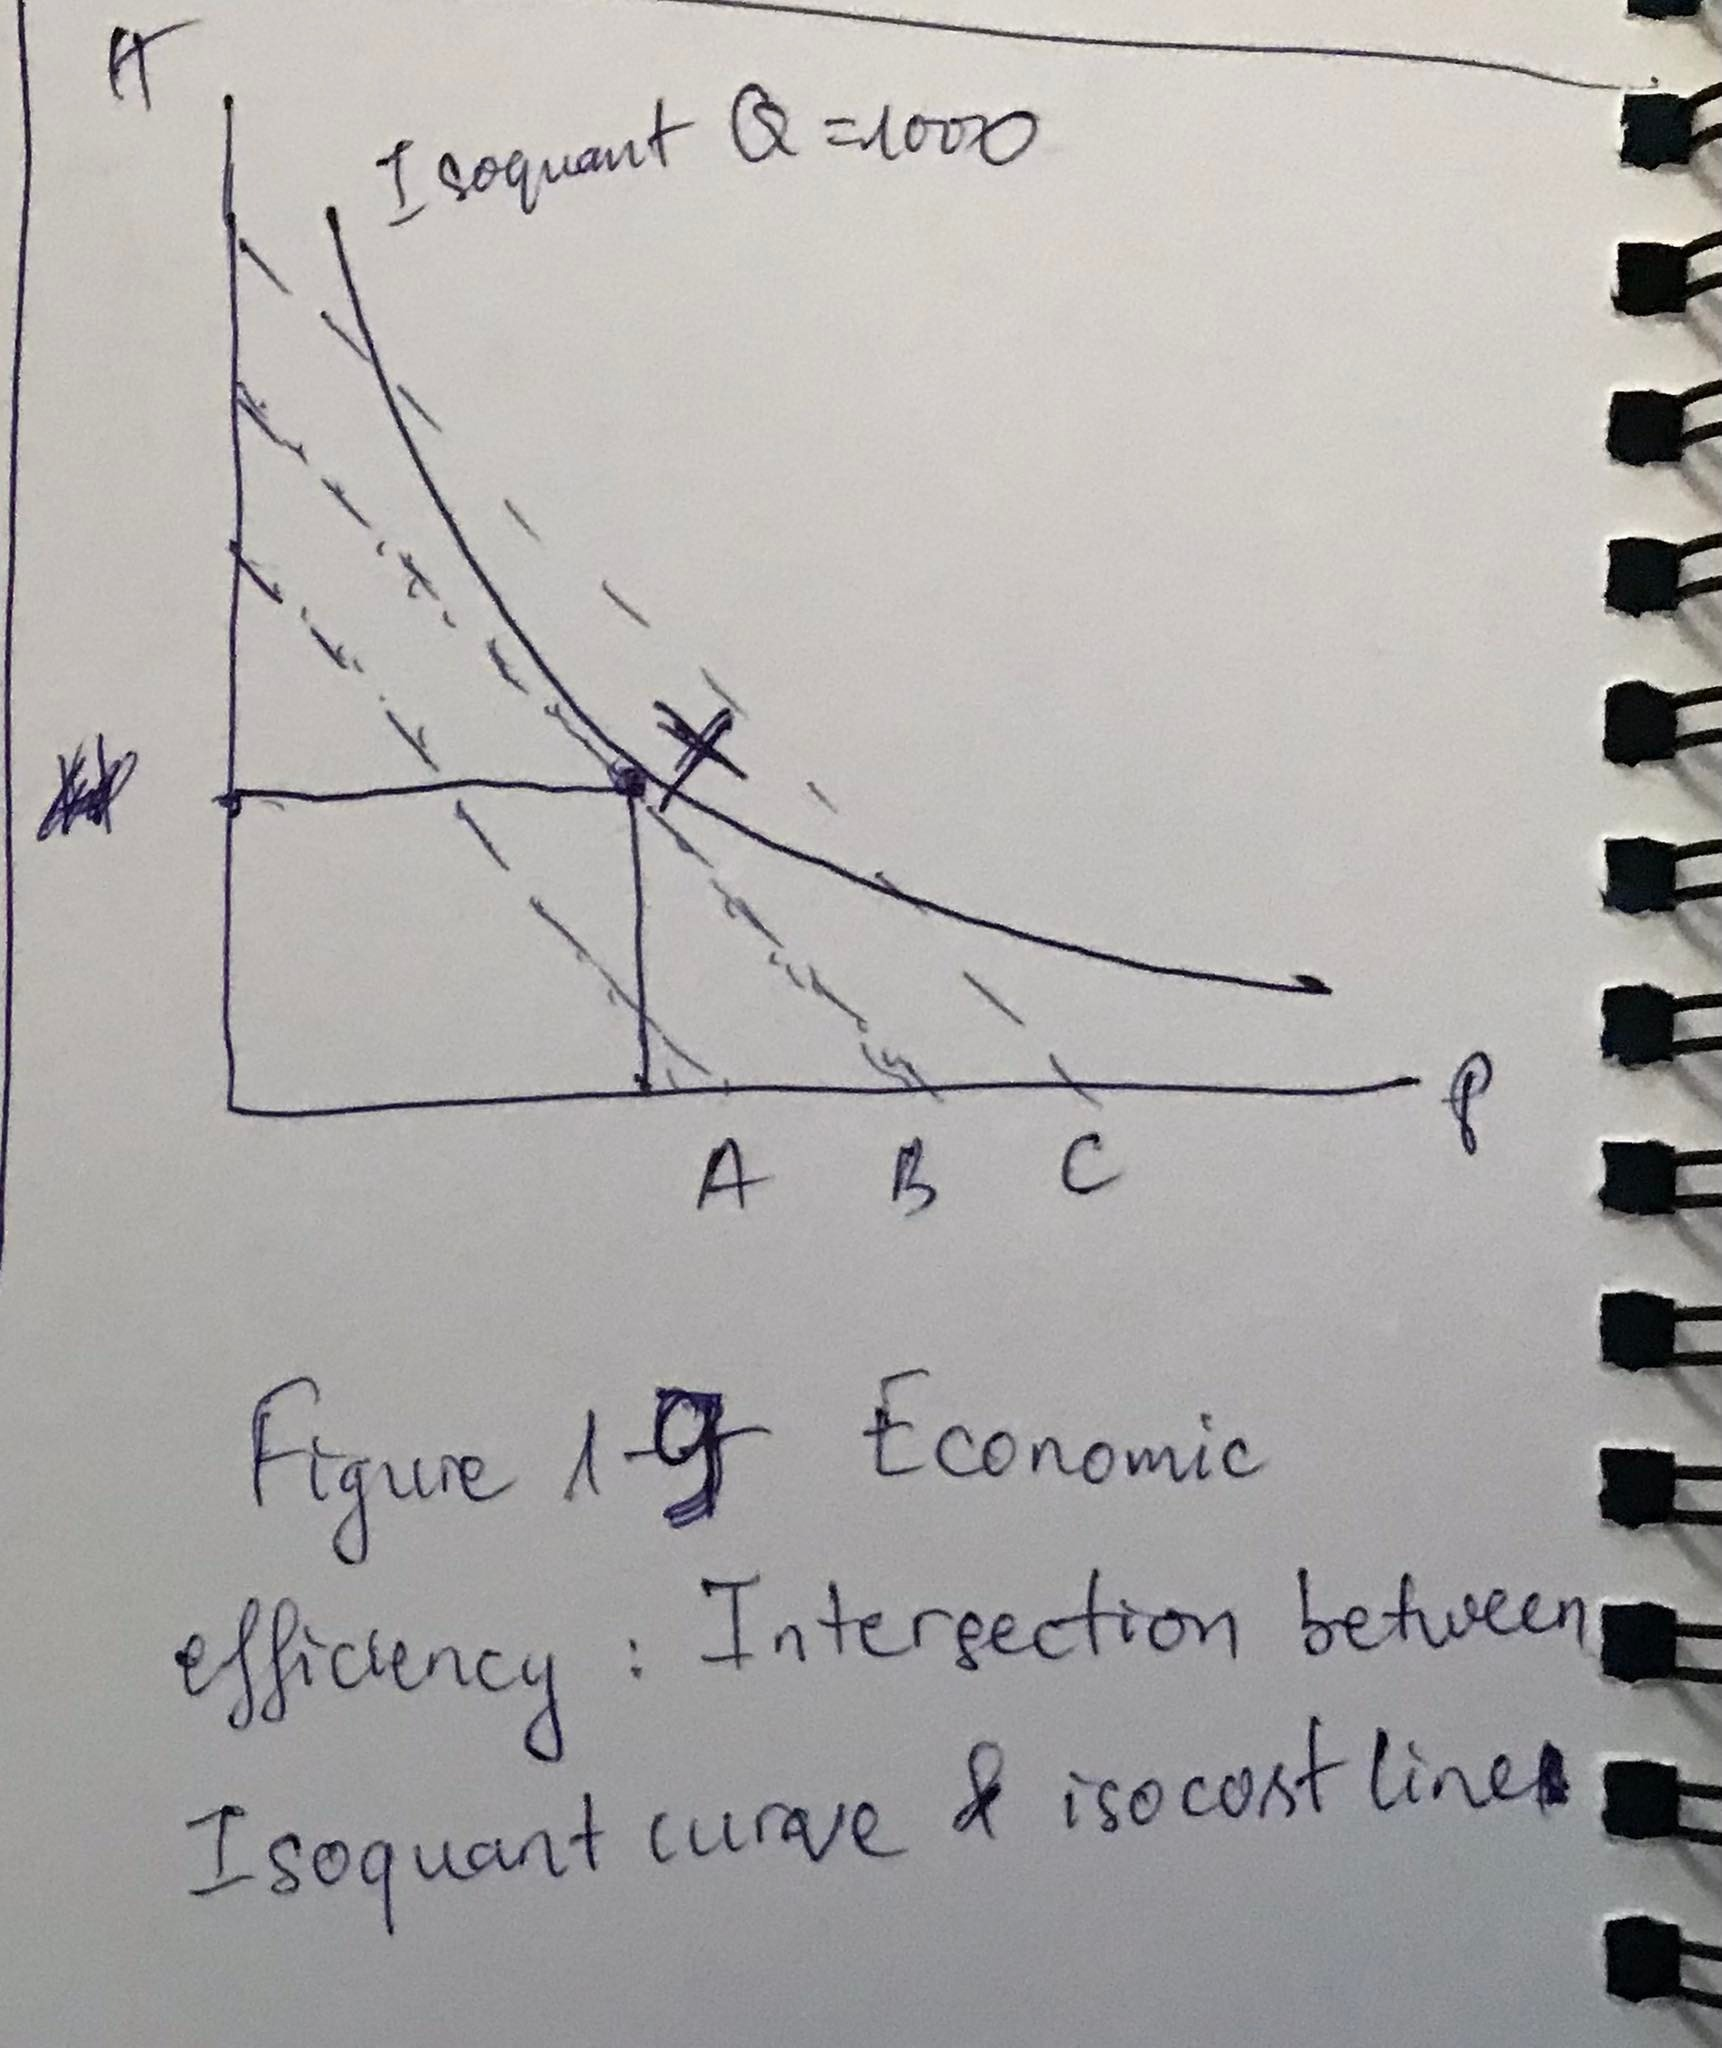 A
Isoquant Q = 1000
X
P
A B C
Figure 1-9 Economic
efficiency : Intersection between
Isoquant curve & isocost line